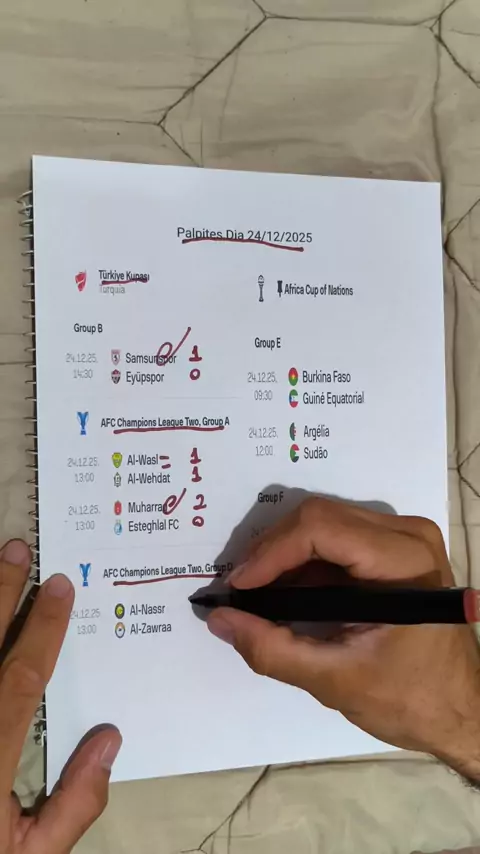 Palpites Dia 24/12/2025
Türkiye Kupası
Turquia
Group B
24.12.25.
14:30
Samsunspor 1
Eyüpspor 0
AFC Champions League Two, Group A
24.12.25.
13:00
Al-Wasl = 1
Al-Wehdat 1
24.12.25.
13:00
Muharraq 2
Esteghlal FC 0
AFC Champions League Two, Group D
24.12.25.
13:00
Al-Nassr
Al-Zawraa
Africa Cup of Nations
Group E
24.12.25.
09:30
Burkina Faso
Guiné Equatorial
24.12.25.
12:00
Argélia
Sudão
Group F